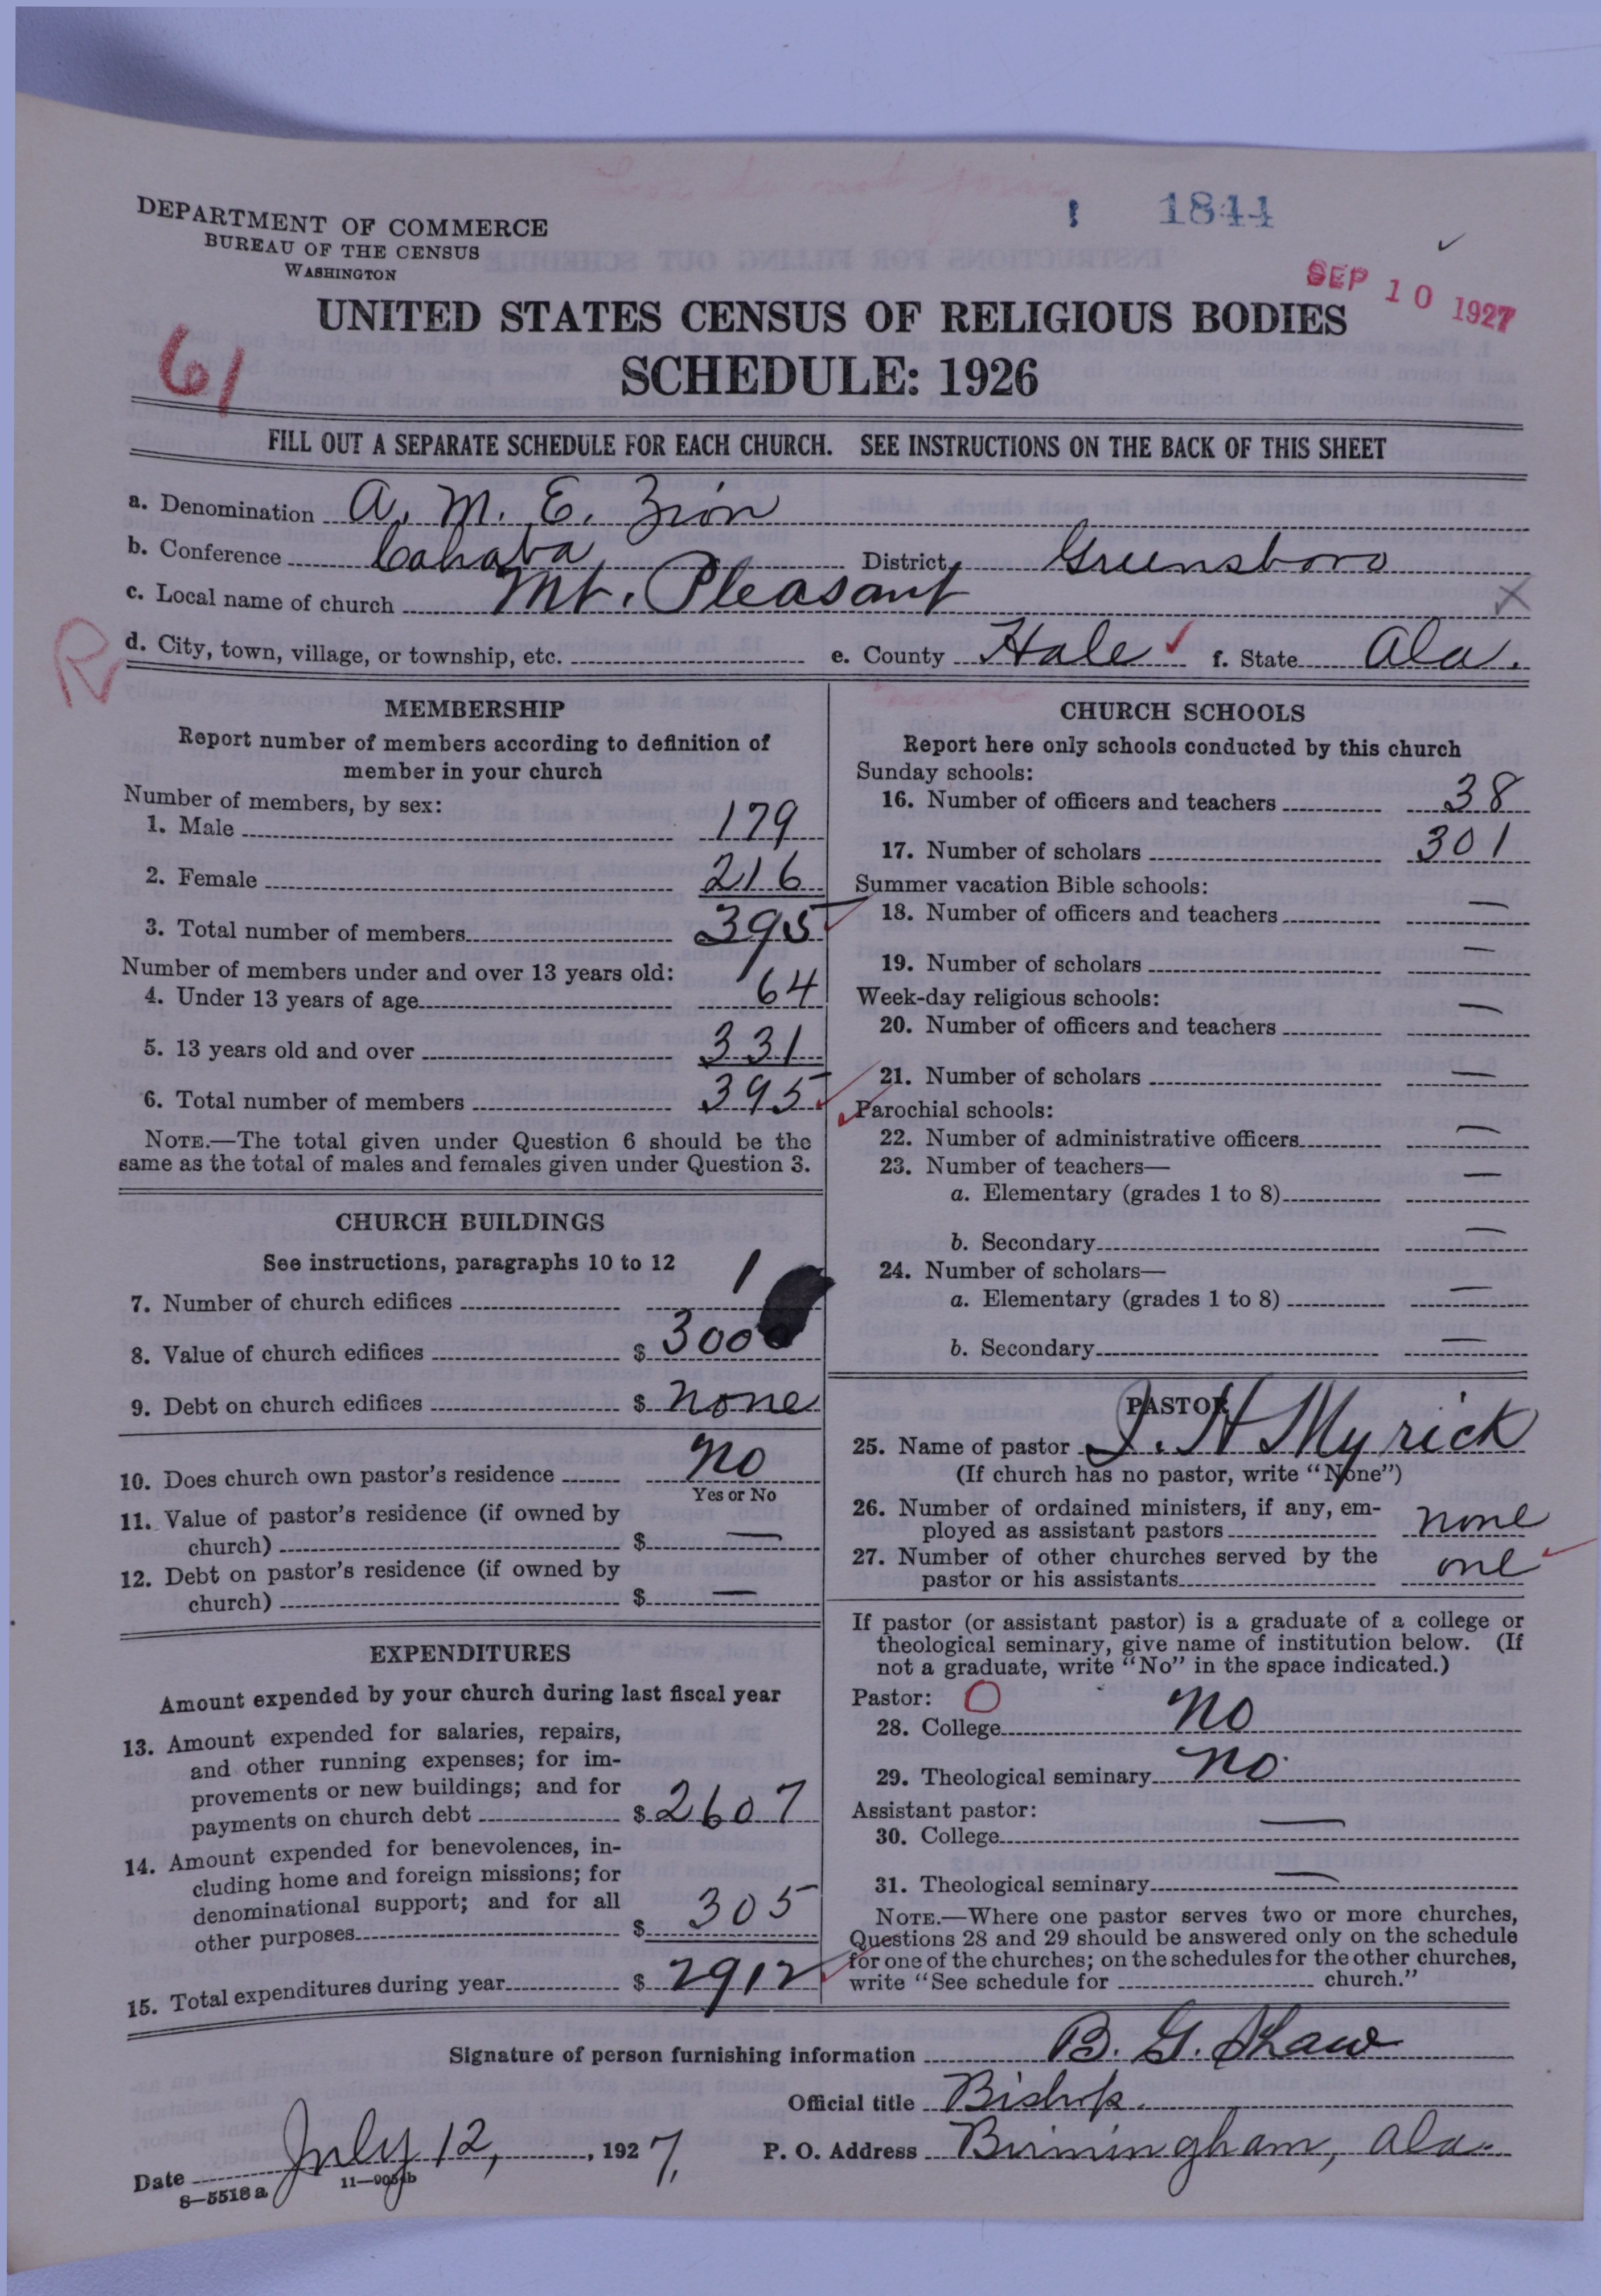 1844
DEPARTMENT OF COMMERCE
BUREAU OF THE CENSUS
WASHINGTON
SEP 10 1927
UNITED STATES CENSUS OF RELIGIOUS BODIES
SCHEDULE: 1926
61
FILL OUT A SEPARATE SCHEDULE FOR EACH CHURCH. SEE INSTRUCTIONS ON THE BACK OF THIS SHEET
a. Denomination A. M. E. Zion
b. Conference Cahaba District Greensboro
c. Local name of church Mt. Pleasant
R
d. City, town, village, or township, etc. e. County Hale f. State Ala.
MEMBERSHIP
Report number of members according to definition of
member in your church
Number of members, by sex:
1. Male 179
2. Female 216
3. Total number of members 395
Number of members under and over 13 years old:
4. Under 13 years of age 64
5. 13 years old and over 331
6. Total number of members 395
NOTE.—The total given under Question 6 should be the
same as the total of males and females given under Question 3.
CHURCH BUILDINGS
See instructions, paragraphs 10 to 12
7. Number of church edifices 1
8. Value of church edifices $ 3000
9. Debt on church edifices $ none
10. Does church own pastor's residence No
Yes or No
11. Value of pastor's residence (if owned by
church) $ —
12. Debt on pastor's residence (if owned by
church) $ —
EXPENDITURES
Amount expended by your church during last fiscal year
13. Amount expended for salaries, repairs,
and other running expenses; for im-
provements or new buildings; and for
payments on church debt $ 2607
14. Amount expended for benevolences, in-
cluding home and foreign missions; for
denominational support; and for all
other purposes $ 305
15. Total expenditures during year $ 2912
CHURCH SCHOOLS
Report here only schools conducted by this church
Sunday schools:
16. Number of officers and teachers 38
17. Number of scholars 301
Summer vacation Bible schools:
18. Number of officers and teachers —
19. Number of scholars —
Week-day religious schools:
20. Number of officers and teachers —
21. Number of scholars —
Parochial schools:
22. Number of administrative officers —
23. Number of teachers—
a. Elementary (grades 1 to 8) —
b. Secondary —
24. Number of scholars—
a. Elementary (grades 1 to 8) —
b. Secondary —
PASTOR
25. Name of pastor J. H Myrick
(If church has no pastor, write "None")
26. Number of ordained ministers, if any, em-
ployed as assistant pastors none
27. Number of other churches served by the
pastor or his assistants one
If pastor (or assistant pastor) is a graduate of a college or
theological seminary, give name of institution below. (If
not a graduate, write "No" in the space indicated.)
Pastor: O
28. College No
29. Theological seminary No
Assistant pastor:
30. College —
31. Theological seminary —
NOTE.—Where one pastor serves two or more churches,
Questions 28 and 29 should be answered only on the schedule
for one of the churches; on the schedules for the other churches,
write "See schedule for church."
Signature of person furnishing information B. G. Shaw
Official title Bishop.
Date July 12, , 1927. P. O. Address Birmingham, Ala.
8—5518 a 11—9051b